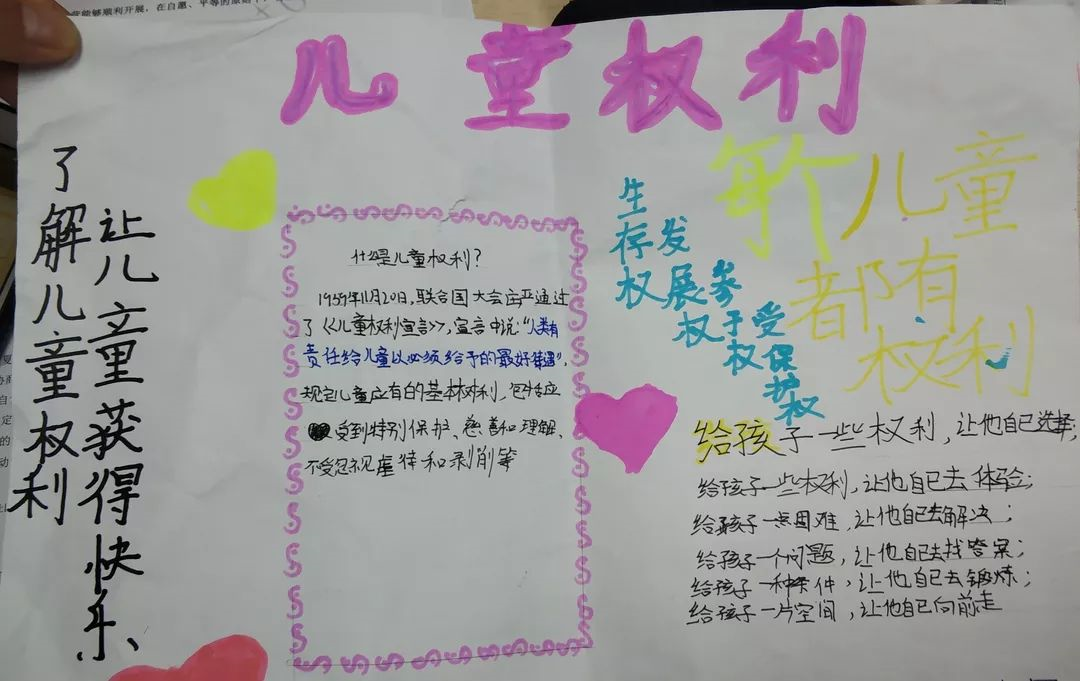 营能够顺利开展，在自愿、平等的原则下，
儿童权利
了解儿童权利
让儿童获得快乐、
什么是儿童权利？
1959年11月20日，联合国大会庄严通过
了《儿童权利宣言》，宣言中说：“人类有
责任给儿童以必须给予的最好待遇”，
规定儿童应有的基本权利，包括应
受到特别保护、慈善和理解、
不受忽视虐待和剥削等
生存权
发展权
参于权
受保护权
每个儿童
都有
权利
给孩子一些权利，让他自己选择；
给孩子一些权利，让他自己去体验；
给孩子一点困难，让他自己去解决；
给孩子一个问题，让他自己去找答案；
给孩子一种条件，让他自己去锻炼；
给孩子一片空间，让他自己向前走